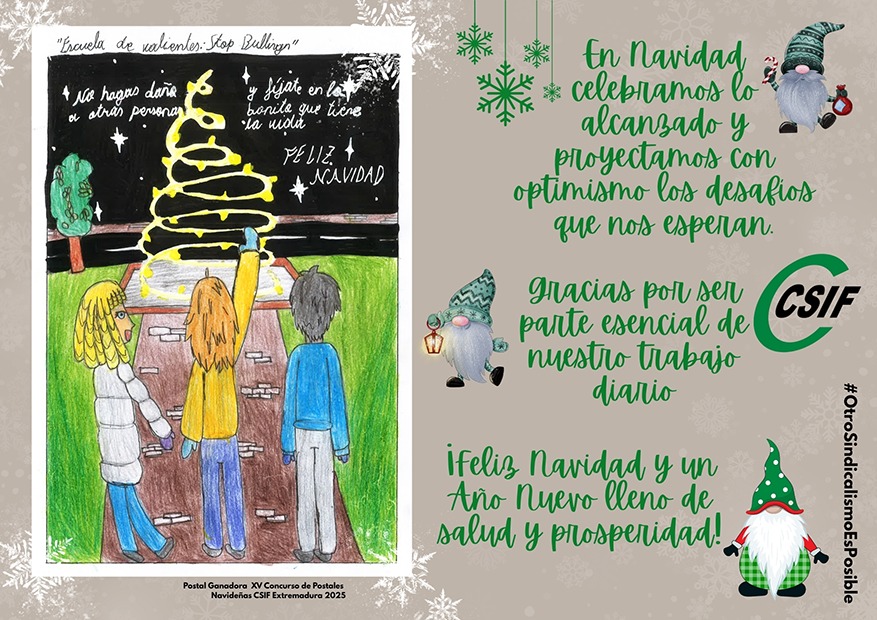 "Escuela de valientes: Stop Bullingn"
No hagas daño
a otras personas
y fíjate en lo
bonito que tiene
la vida
FELIZ
NAVIDAD
Postal Ganadora XV Concurso de Postales
Navideñas CSIF Extremadura 2025
En Navidad
celebramos lo
alcanzado y
proyectamos con
optimismo los desafíos
que nos esperan.
Gracias por ser
parte esencial de
nuestro trabajo
diario
CSIF
¡Feliz Navidad y un
Año Nuevo lleno de
salud y prosperidad!
#OtroSindicalismoEsPosible